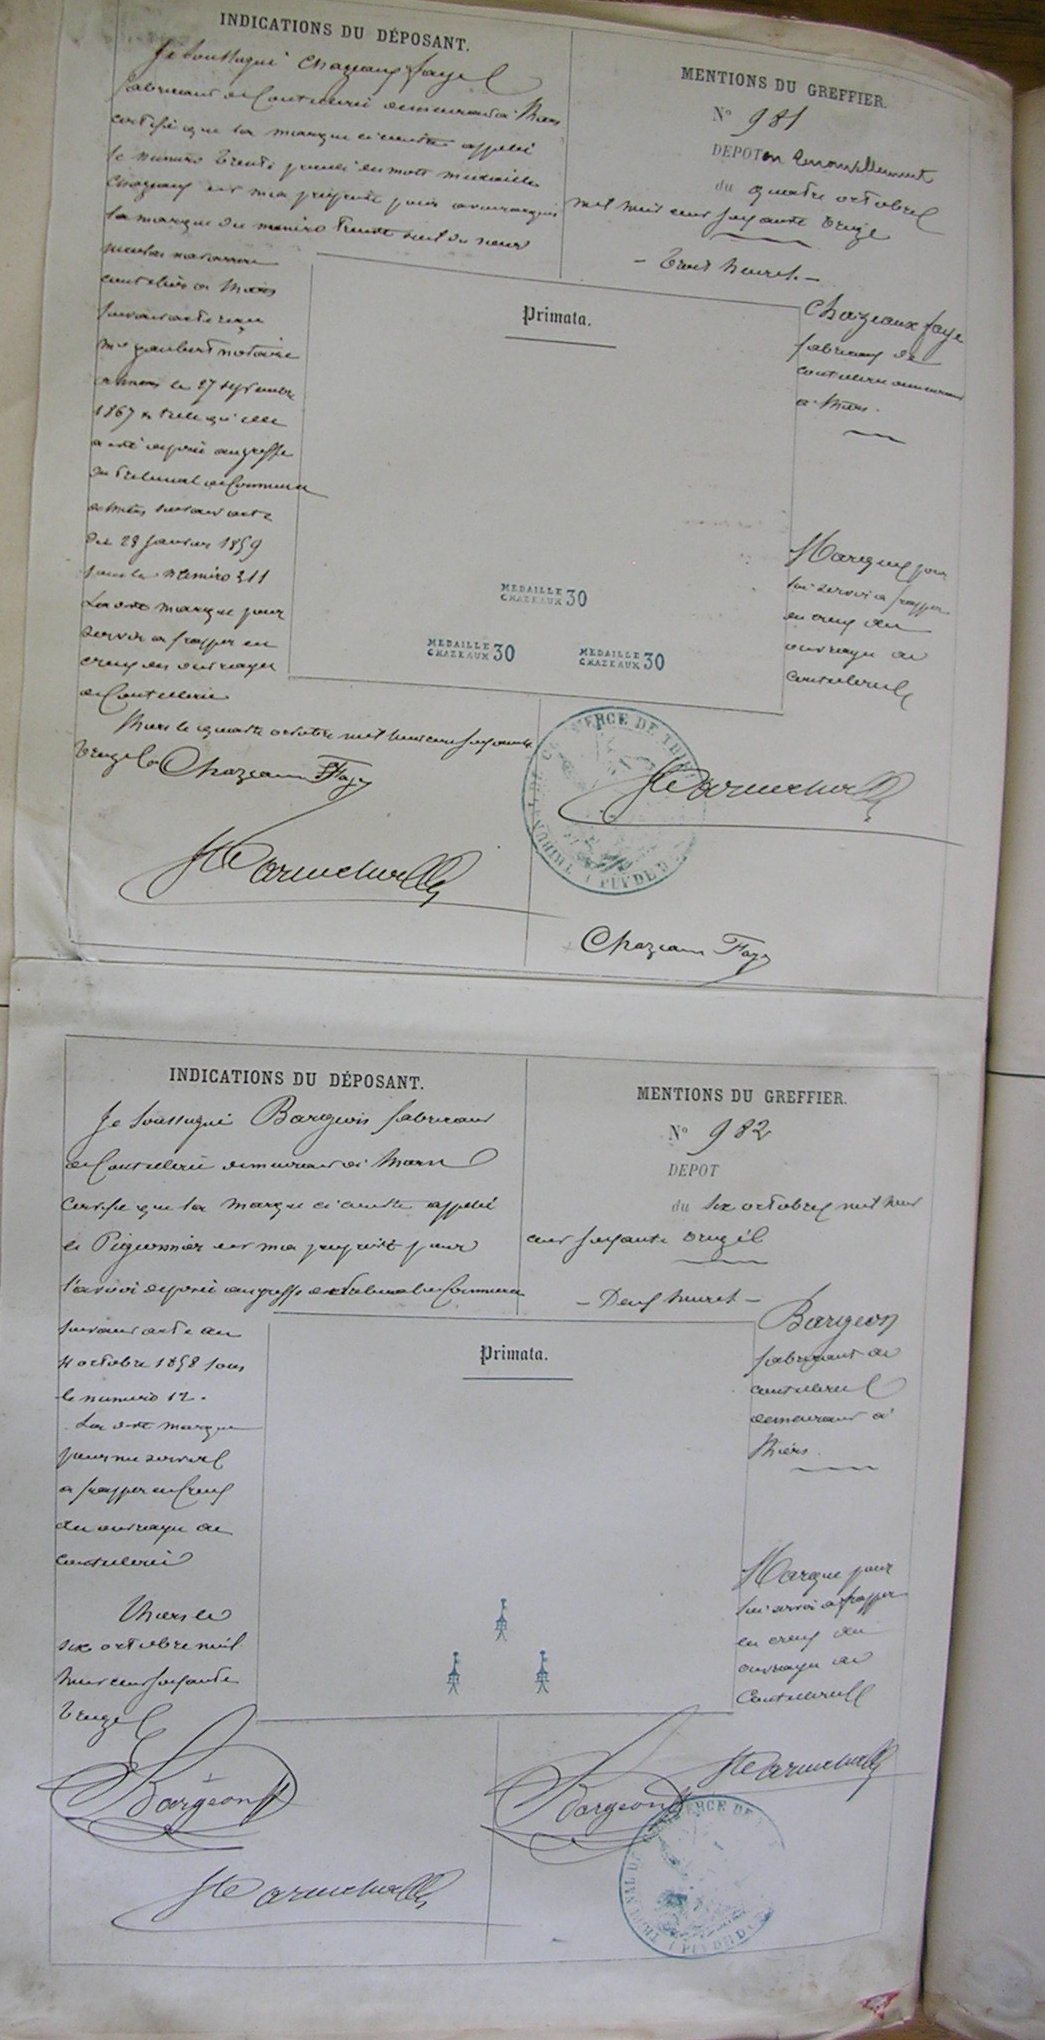 INDICATIONS DU DÉPOSANT.
Je soussigné Chazeaux faye
fabricant de Coutellerie demeurant à Thiers
certifie que la marque ci contre appelé
le numéro trente précédé du mots medaille
Chazeaux est ma propriété pour avoir acquis
la marque du numéro trente seul du sieur
navarron
coutelier a Thiers
suivant acte reçu
me notaire
a Thiers le 27 septembre
1867 et telle qu'elle
a été déposé au greffe
du Tribunal de Commerce
de Thiers suivant acte
du 28 janvier 1859
sous le numéro 311
La dite marque pour
servir a frapper en
creux des ouvrages
de Coutellerie
Thiers le quatre octobre mil huit cent soixante
treize
Chazeaux Faye
MENTIONS DU GREFFIER.
N° 981
DEPOT en renouvellement
du quatre octobre
mil huit cent soixante treize
- trois heures -
Primata.
Chazeaux faye
fabricant de
coutellerie demeurant
à Thiers.
Marque pour
lui servir a frapper
en creux des
ouvrages de
coutellerie
MEDAILLE
CHAZEAUX 30
MEDAILLE
CHAZEAUX 30
MEDAILLE
CHAZEAUX 30
TRIBUNAL DE COMMERCE DE THIERS
PUY DE D
Chazeaux Faye
INDICATIONS DU DÉPOSANT.
Je soussigné Bargeon fabricant
de Coutellerie demeurant à Thiers
Certifie que la marque ci contre appelé
le Pigeonnier est ma propriété pour
l'avoir déposé au greffe du Tribunal de Commerce
suivant acte du
octobre 1858 sous
le numéro 12.
La dite marque
pour me servir
a frapper en Creux
des ouvrages de
coutellerie
Thiers le
six octobre mil
huit cent soixante
treize
Bargeon
MENTIONS DU GREFFIER.
N° 982
DEPOT
du six octobre mil huit
cent soixante treize
- Deux heures -
Primata.
Bargeon
fabricant de
coutellerie
demeurant à
Thiers.
Marque pour
lui servir a frapper
en creux des
ouvrages de
Coutellerie
Bargeon
TRIBUNAL DE COMMERCE DE
PUY DE D